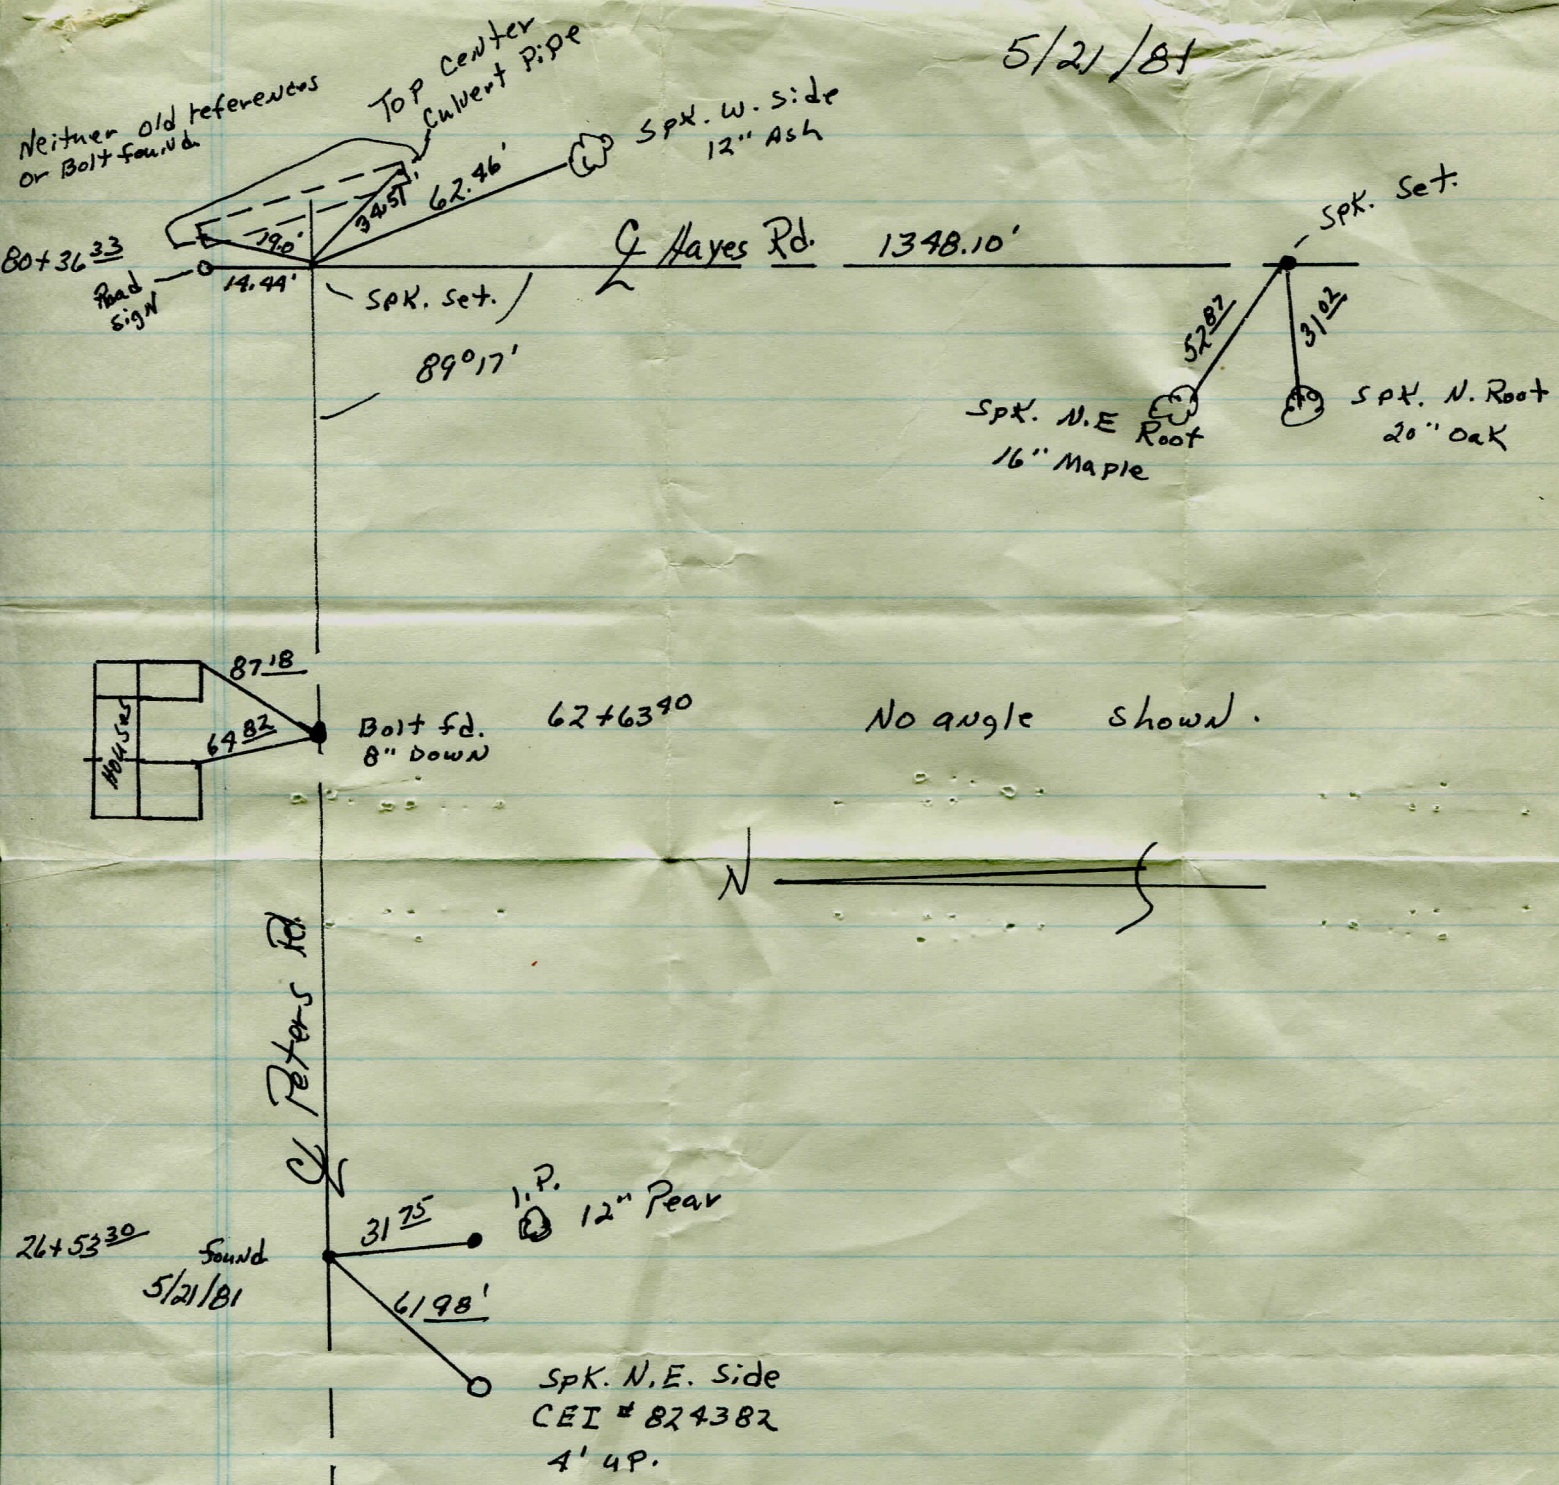 5/21/81
Neither old references
or Bolt found
Top Center
Culvert Pipe
Spk. W. Side
12" Ash
62.46'
34.51
19.0'
80+36 33
Road
Sign
14.44'
Spk. Set.
℄ Hayes Rd. 1348.10'
Spk. Set.
89°17'
52 87
31 02
Spk. N.E Root
16" Maple
Spk. N. Root
20" Oak
87 18
64 82
House
Bolt fd.
8" Down
62+63 40
No angle shown.
N
℄ Peters Rd.
26+53 30
found
5/21/81
31 75
I.P.
12" Pear
61 98'
Spk. N.E. Side
CEI # 824382
4' up.